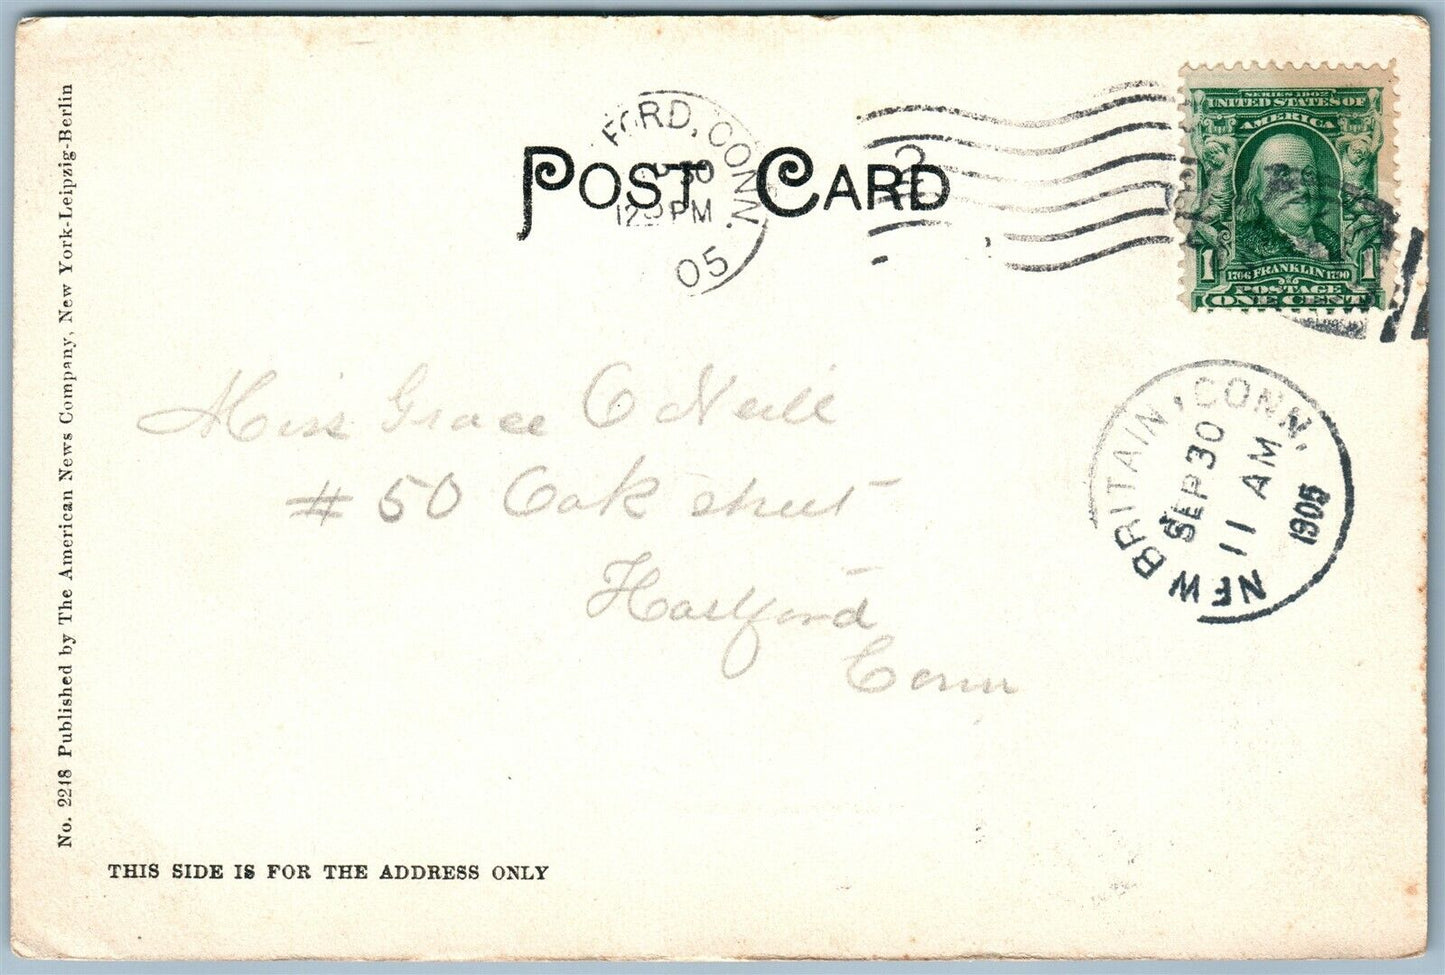 POST CARD
FORD, CONN.
30
PM
05
SERIES 1902
UNITED STATES OF
AMERICA
1 1766 FRANKLIN 1790 1
POSTAGE
ONE CENT
Miss Grace O Neill
# 50 Oak street
Hartford
Conn
NEW BRITAIN, CONN.
SEP 30
11 AM
1905
No. 2218 Published by The American News Company, New York-Leipzig-Berlin
THIS SIDE IS FOR THE ADDRESS ONLY